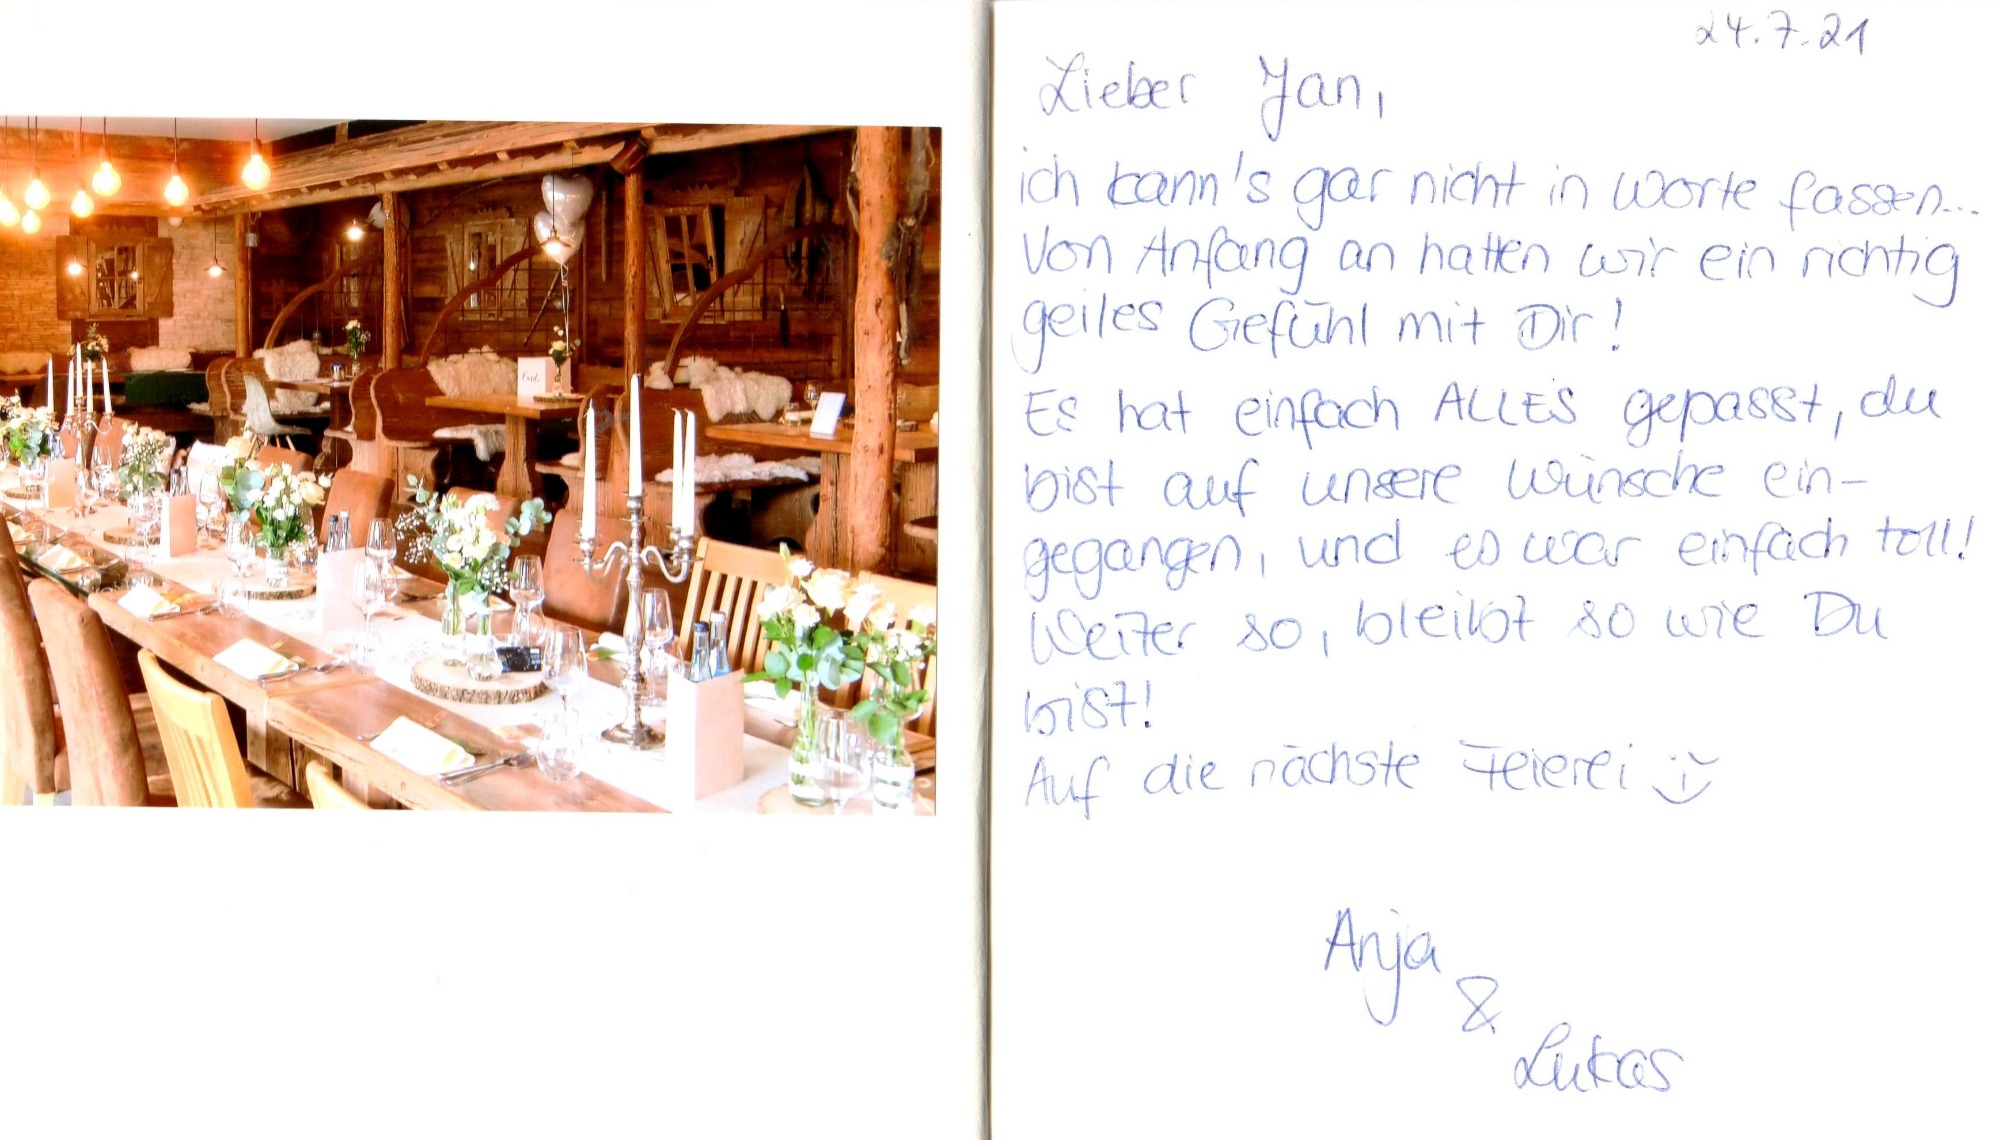 24.7.21
Lieber Jan,
ich kann's gar nicht in Worte fassen...
Von Anfang an hatten wir ein richtig
geiles Gefühl mit Dir!
Es hat einfach ALLES gepasst, du
bist auf unsere Wünsche ein-
gegangen, und es war einfach toll!
Weiter so, bleibt so wie Du
bist!
Auf die nächste Feierei
Anja
&
Lukas